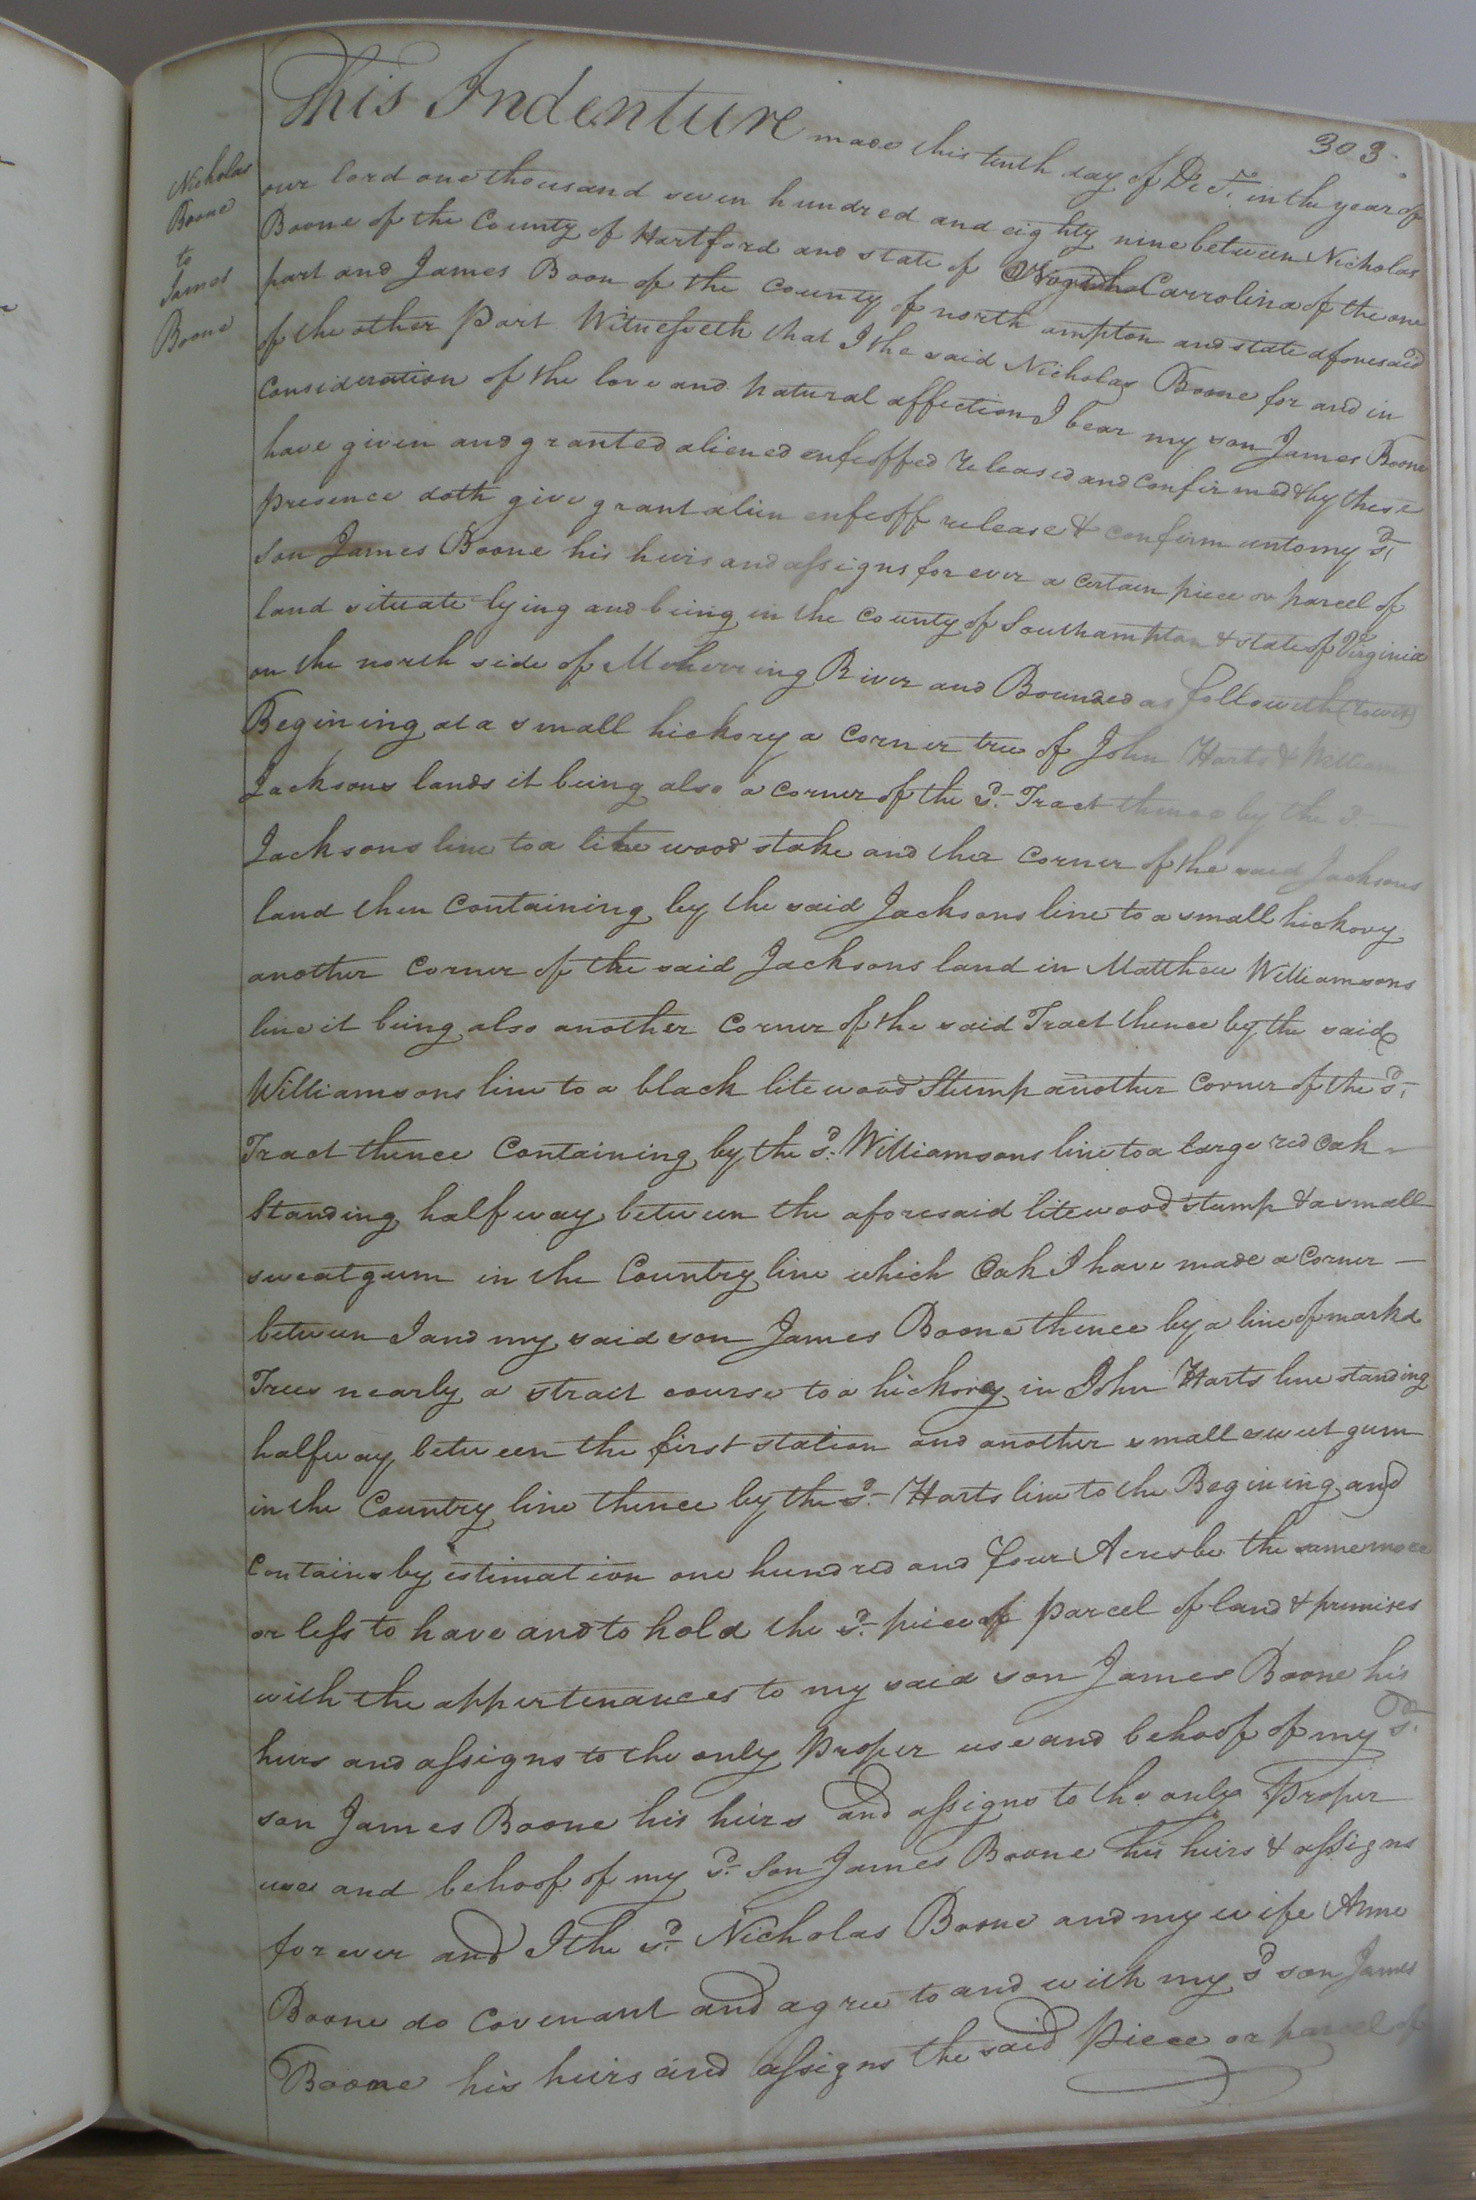 303.
Nicholas
Boone
to
James
Boone
This Indenture made this tenth day of in the year of
our lord one thousand seven hundred and eighty nine between Nicholas
Boone of the County of Hartford and state of North Carrolina of the one
part and James Boon of the County of north ampton and state aforesaid
of the other Part Witnesseth that I the said Nicholas Boone for and in
Consideration of the love and Natural affection I bear my son James Boone
have given and granted aliened enfeoffed released and Confirmed & by these
presence doth give grant alien enfeoff release & confirm unto my sd.
son James Boone his heirs and assigns for ever a certain piece or parcel of
land situate lying and being in the County of Southampton & state of Virginia
on the north side of Meherring River and Bounded as followeth (towit)
Begining at a small hickory a Corner tree of John Harts & William
Jacksons lands it being also a Corner of the sd. Tract thence by the sd.
Jacksons line to a lite wood stake and ther Corner of the said Jacksons
land then Containing by the said Jacksons line to a small hickory
another Corner of the said Jacksons land in Matthew Williamsons
line it being also another Corner of the said Tract thence by the said
Williamsons line to a black lite wood Stump another Corner of the sd.
Tract thence Containing by the sd. Williamsons line to a large red Oak
Standing halfway between the aforesaid litewood stump & a small
sweatgum in the Country line which Oak I have made a Corner —
between I and my said son James Boone thence by a line of markd
Trees nearly a strait course to a hickory in John Harts line standing
halfway between the first station and another small sweet gum
in the Country line thence by the sd. Harts line to the Begining and
Contains by estimation one hundred and four Acres be the same more
or less to have and to hold the sd. piece of parcel of land & premises
with the appurtenances to my said son James Boone his
heirs and assigns to the only Proper use and behoof of my sd.
son James Boone his heirs and assigns to the only Proper
use and behoof of my sd. Son James Boone his heirs & assigns
for ever and I the sd. Nicholas Boone and my wife Anne
Boone do Covenant and agree to and with my sd son James
Boone his heirs and assigns the said Piece or parcel of